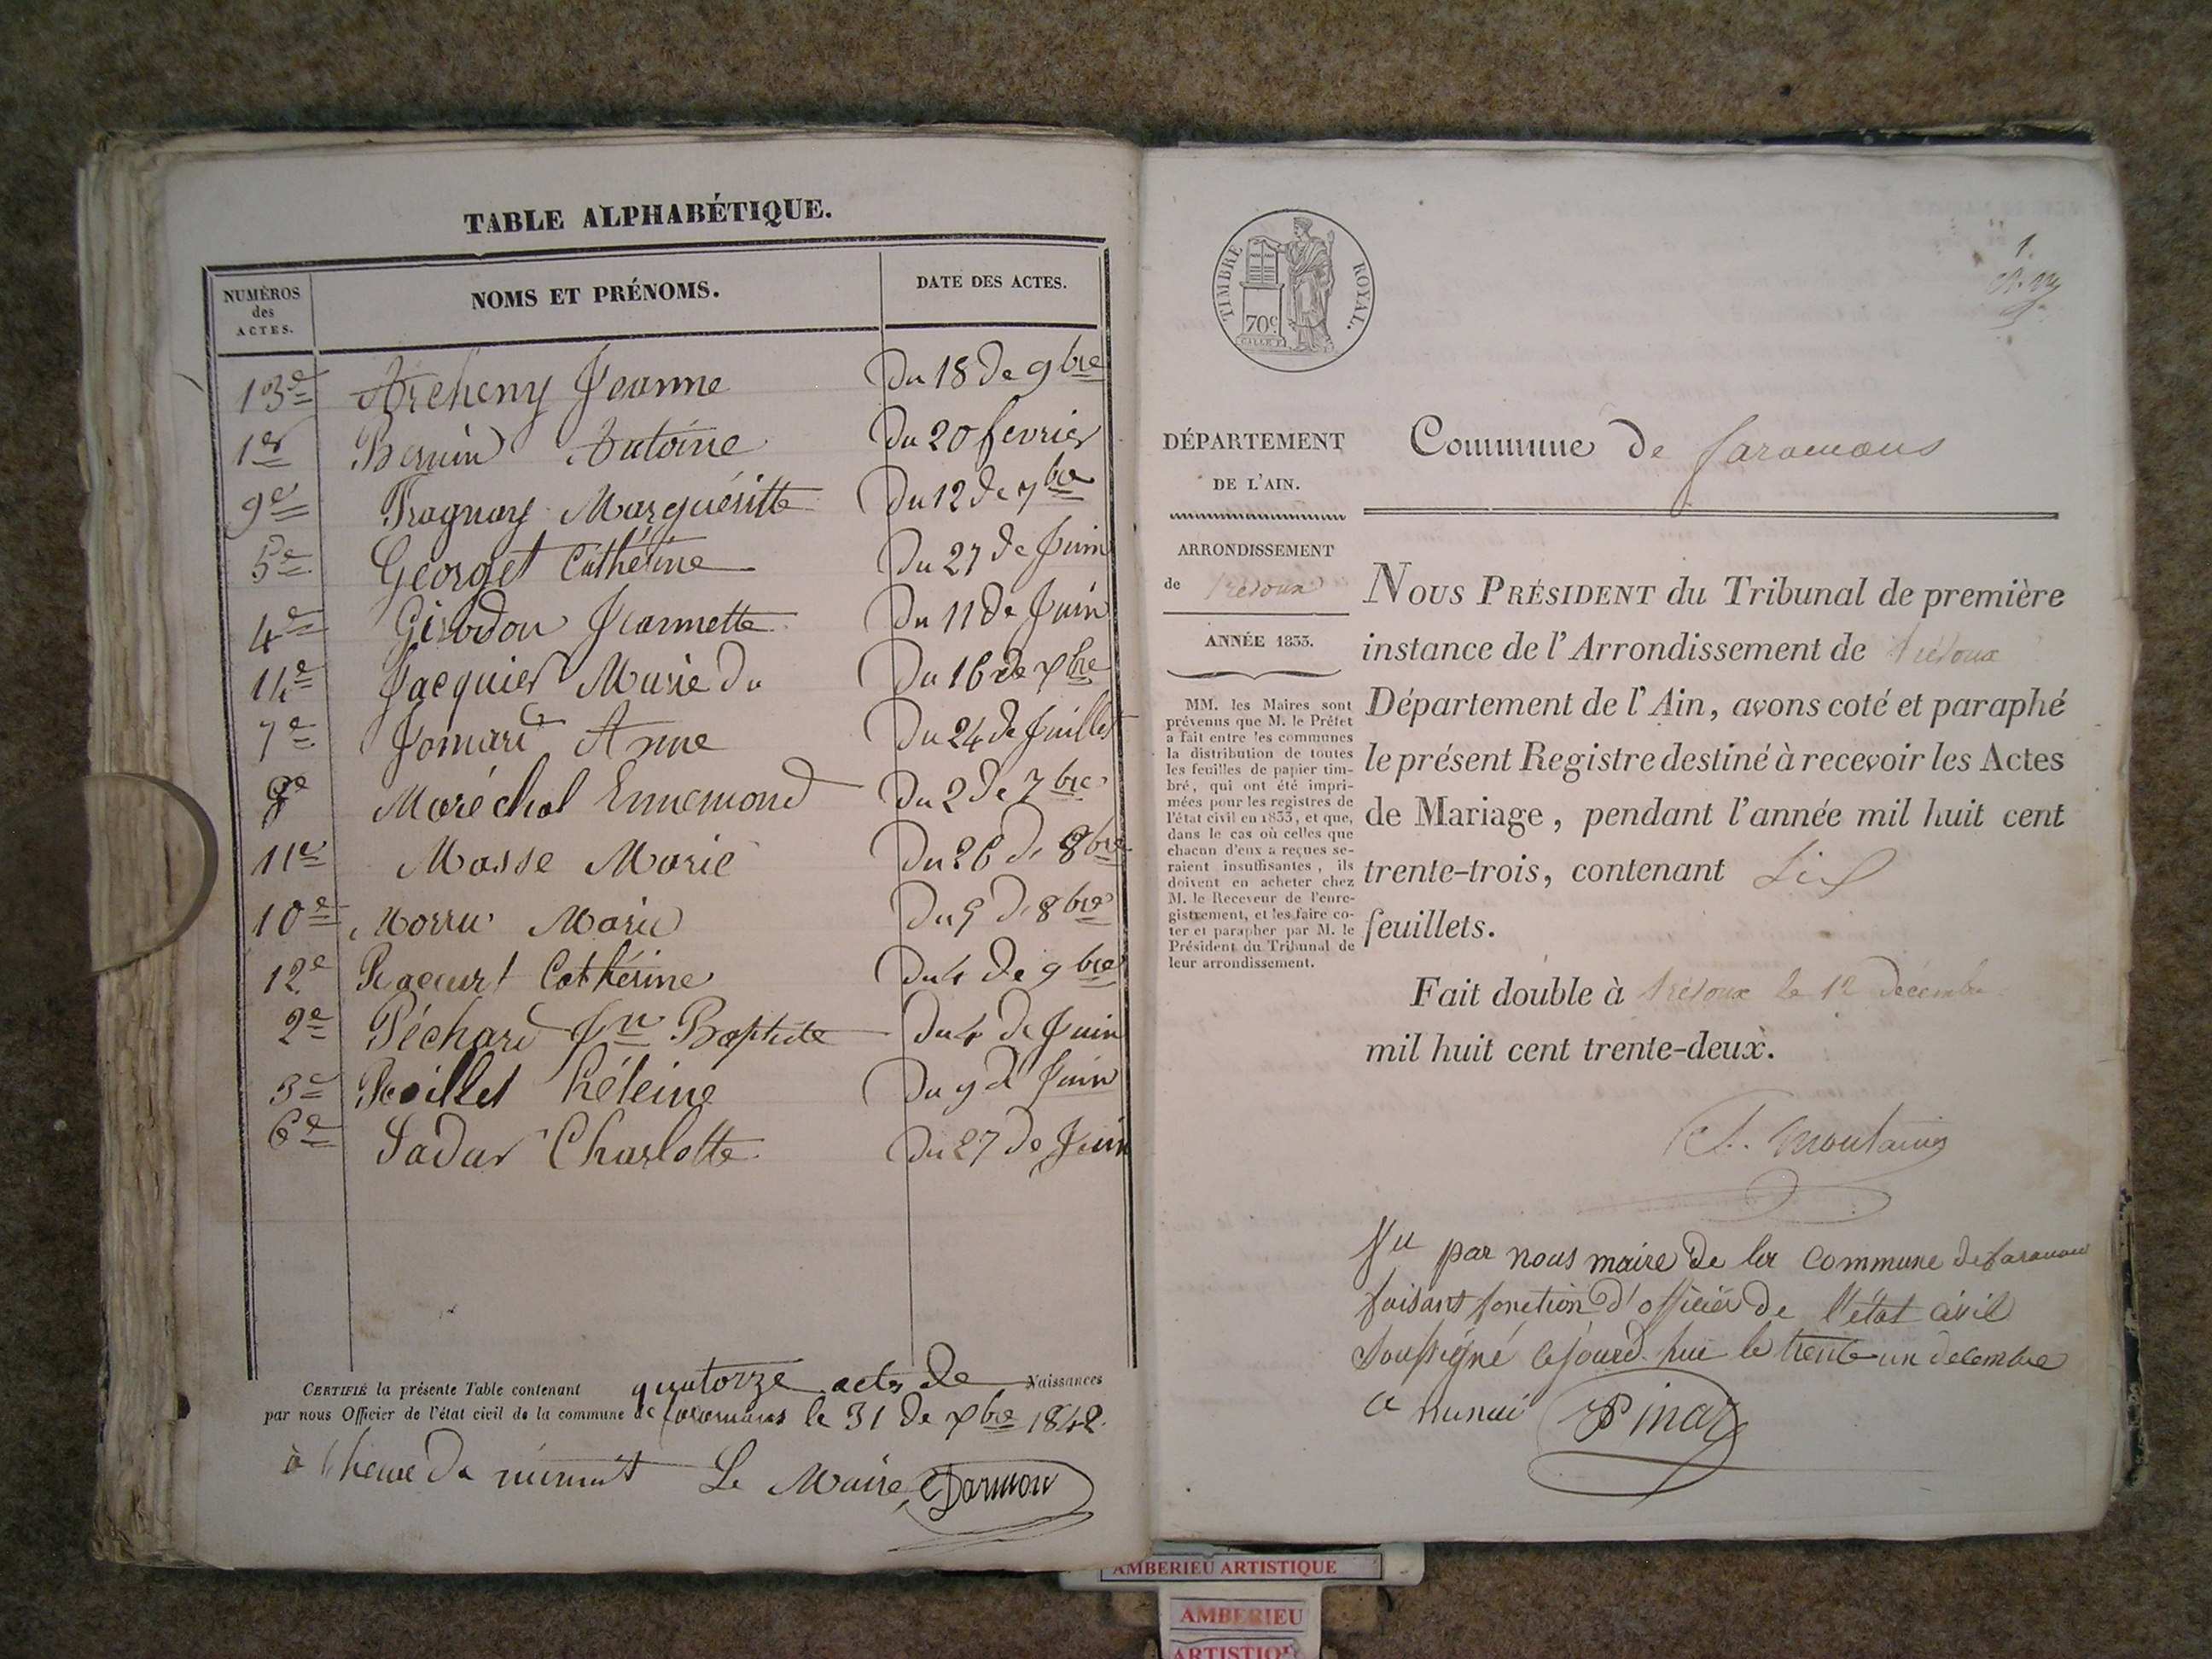 TABLE ALPHABÉTIQUE.
NUMÉROS des ACTES.
NOMS ET PRÉNOMS.
DATE DES ACTES.
13e Jeanne Du 18 de 9bre
1er Bernin Antoine Du 20 fevrier
9e Fragnay Marguéritte Du 12 de 7bre
5e Georget Cathérine Du 27 de Juin
4e Girodon Jeannette Du 11 de Juin
14e Jacquier Marie Du 16 de Xbre
7e Jomard Anne Du 24 de Juillet
8e Maréchal Ennemond Du 2 de 7bre
11e Masse Marie Du 26 de 8bre
10e Marie Du 9 de 8bre
12e Cathérine Du 4 de 9bre
2e Péchard Jn Baptiste du 4 de Juin
3e Héleine Du 9 de Juin
6e Sadar Charlotte Du 27 de Juin
CERTIFIÉ la présente Table contenant quatorze actes de Naissances
par nous Officier de l'état civil de la commune de faramans le 31 de Xbre 1842.
à l'heure de minuit Le Maire
TIMBRE ROYAL.
70c
1.
DÉPARTEMENT
DE L'AIN.
ARRONDISSEMENT
de Trévoux
ANNÉE 1833.
MM. les Maires sont
prévenus que M. le Préfet
a fait entre les communes
la distribution de toutes
les feuilles de papier tim-
bré, qui ont été impri-
mées pour les registres de
l'état civil en 1833, et que,
dans le cas où celles que
chacun d'eux a reçues se-
raient insuffisantes, ils
doivent en acheter chez
M. le Receveur de l'enre-
gistrement, et les faire co-
ter et parapher par M. le
Président du Tribunal de
leur arrondissement.
Commune de faramans
NOUS PRÉSIDENT du Tribunal de première
instance de l'Arrondissement de Trévoux
Département de l'Ain, avons coté et paraphé
le présent Registre destiné à recevoir les Actes
de Mariage, pendant l'année mil huit cent
trente-trois, contenant Six
feuillets.
Fait double à Trévoux le 12 décembre
mil huit cent trente-deux.
Vu par nous maire de la Commune de faramans
faisant fonction d'officier de l'état civil
soussigné cejourd'hui le trente un decembre
a minui Pinaz
AMBERIEU ARTISTIQUE
AMBERIEU
ARTISTIQUE